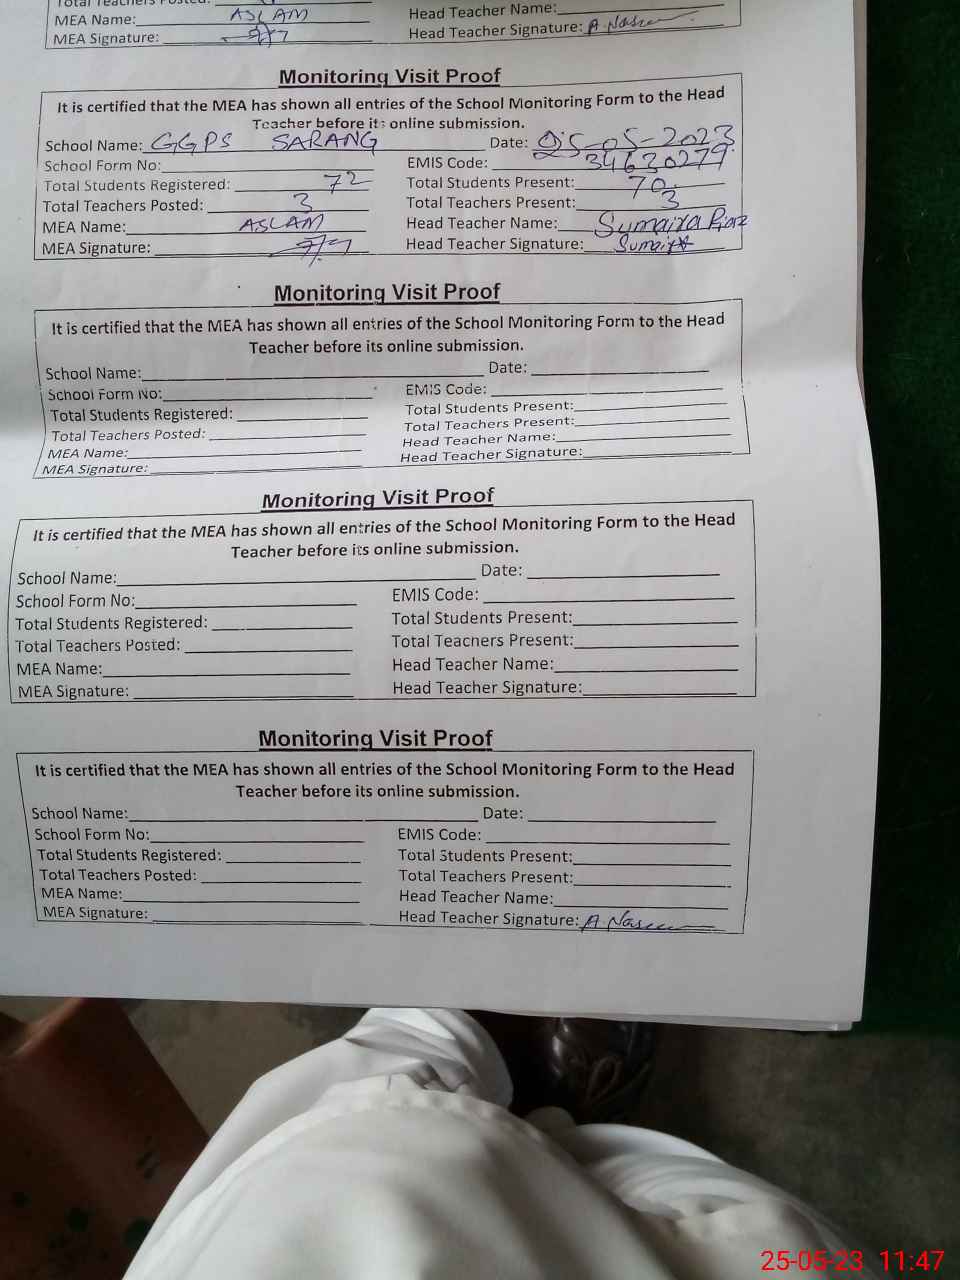 Total Teachers Posted:
MEA Name: ASLAM Head Teacher Name:
MEA Signature: Head Teacher Signature: A. Nasu
Monitoring Visit Proof
It is certified that the MEA has shown all entries of the School Monitoring Form to the Head
Teacher before its online submission.
School Name: GGPS SARANG Date: 25-05-2023
School Form No: EMIS Code: 34630279
Total Students Registered: 72 Total Students Present: 70
Total Teachers Posted: 3 Total Teachers Present: 3
MEA Name: ASLAM Head Teacher Name: Sumaira Riaz
MEA Signature: Head Teacher Signature: Sumaira
Monitoring Visit Proof
It is certified that the MEA has shown all entries of the School Monitoring Form to the Head
Teacher before its online submission.
School Name: Date:
School Form No: EMIS Code:
Total Students Registered: Total Students Present:
Total Teachers Posted: Total Teachers Present:
MEA Name: Head Teacher Name:
MEA Signature: Head Teacher Signature:
Monitoring Visit Proof
It is certified that the MEA has shown all entries of the School Monitoring Form to the Head
Teacher before its online submission.
School Name: Date:
School Form No: EMIS Code:
Total Students Registered: Total Students Present:
Total Teachers Posted: Total Teachers Present:
MEA Name: Head Teacher Name:
MEA Signature: Head Teacher Signature:
Monitoring Visit Proof
It is certified that the MEA has shown all entries of the School Monitoring Form to the Head
Teacher before its online submission.
School Name: Date:
School Form No: EMIS Code:
Total Students Registered: Total Students Present:
Total Teachers Posted: Total Teachers Present:
MEA Name: Head Teacher Name:
MEA Signature: Head Teacher Signature: A. Nasu
25-05-23 11:47